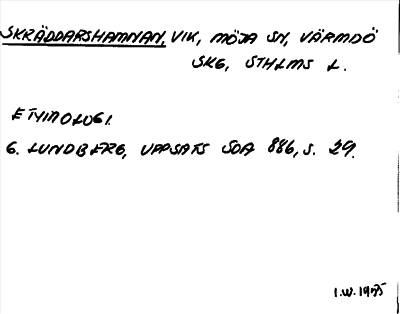 SKRÄDDARSHAMNAN, VIK, MÖJA SN, VÄRMDÖ
SKG, STHLMS L.
ETYMOLOGI.
G. LUNDBERG, UPPSATS SOA 886, S. 29.
I.W. 1955